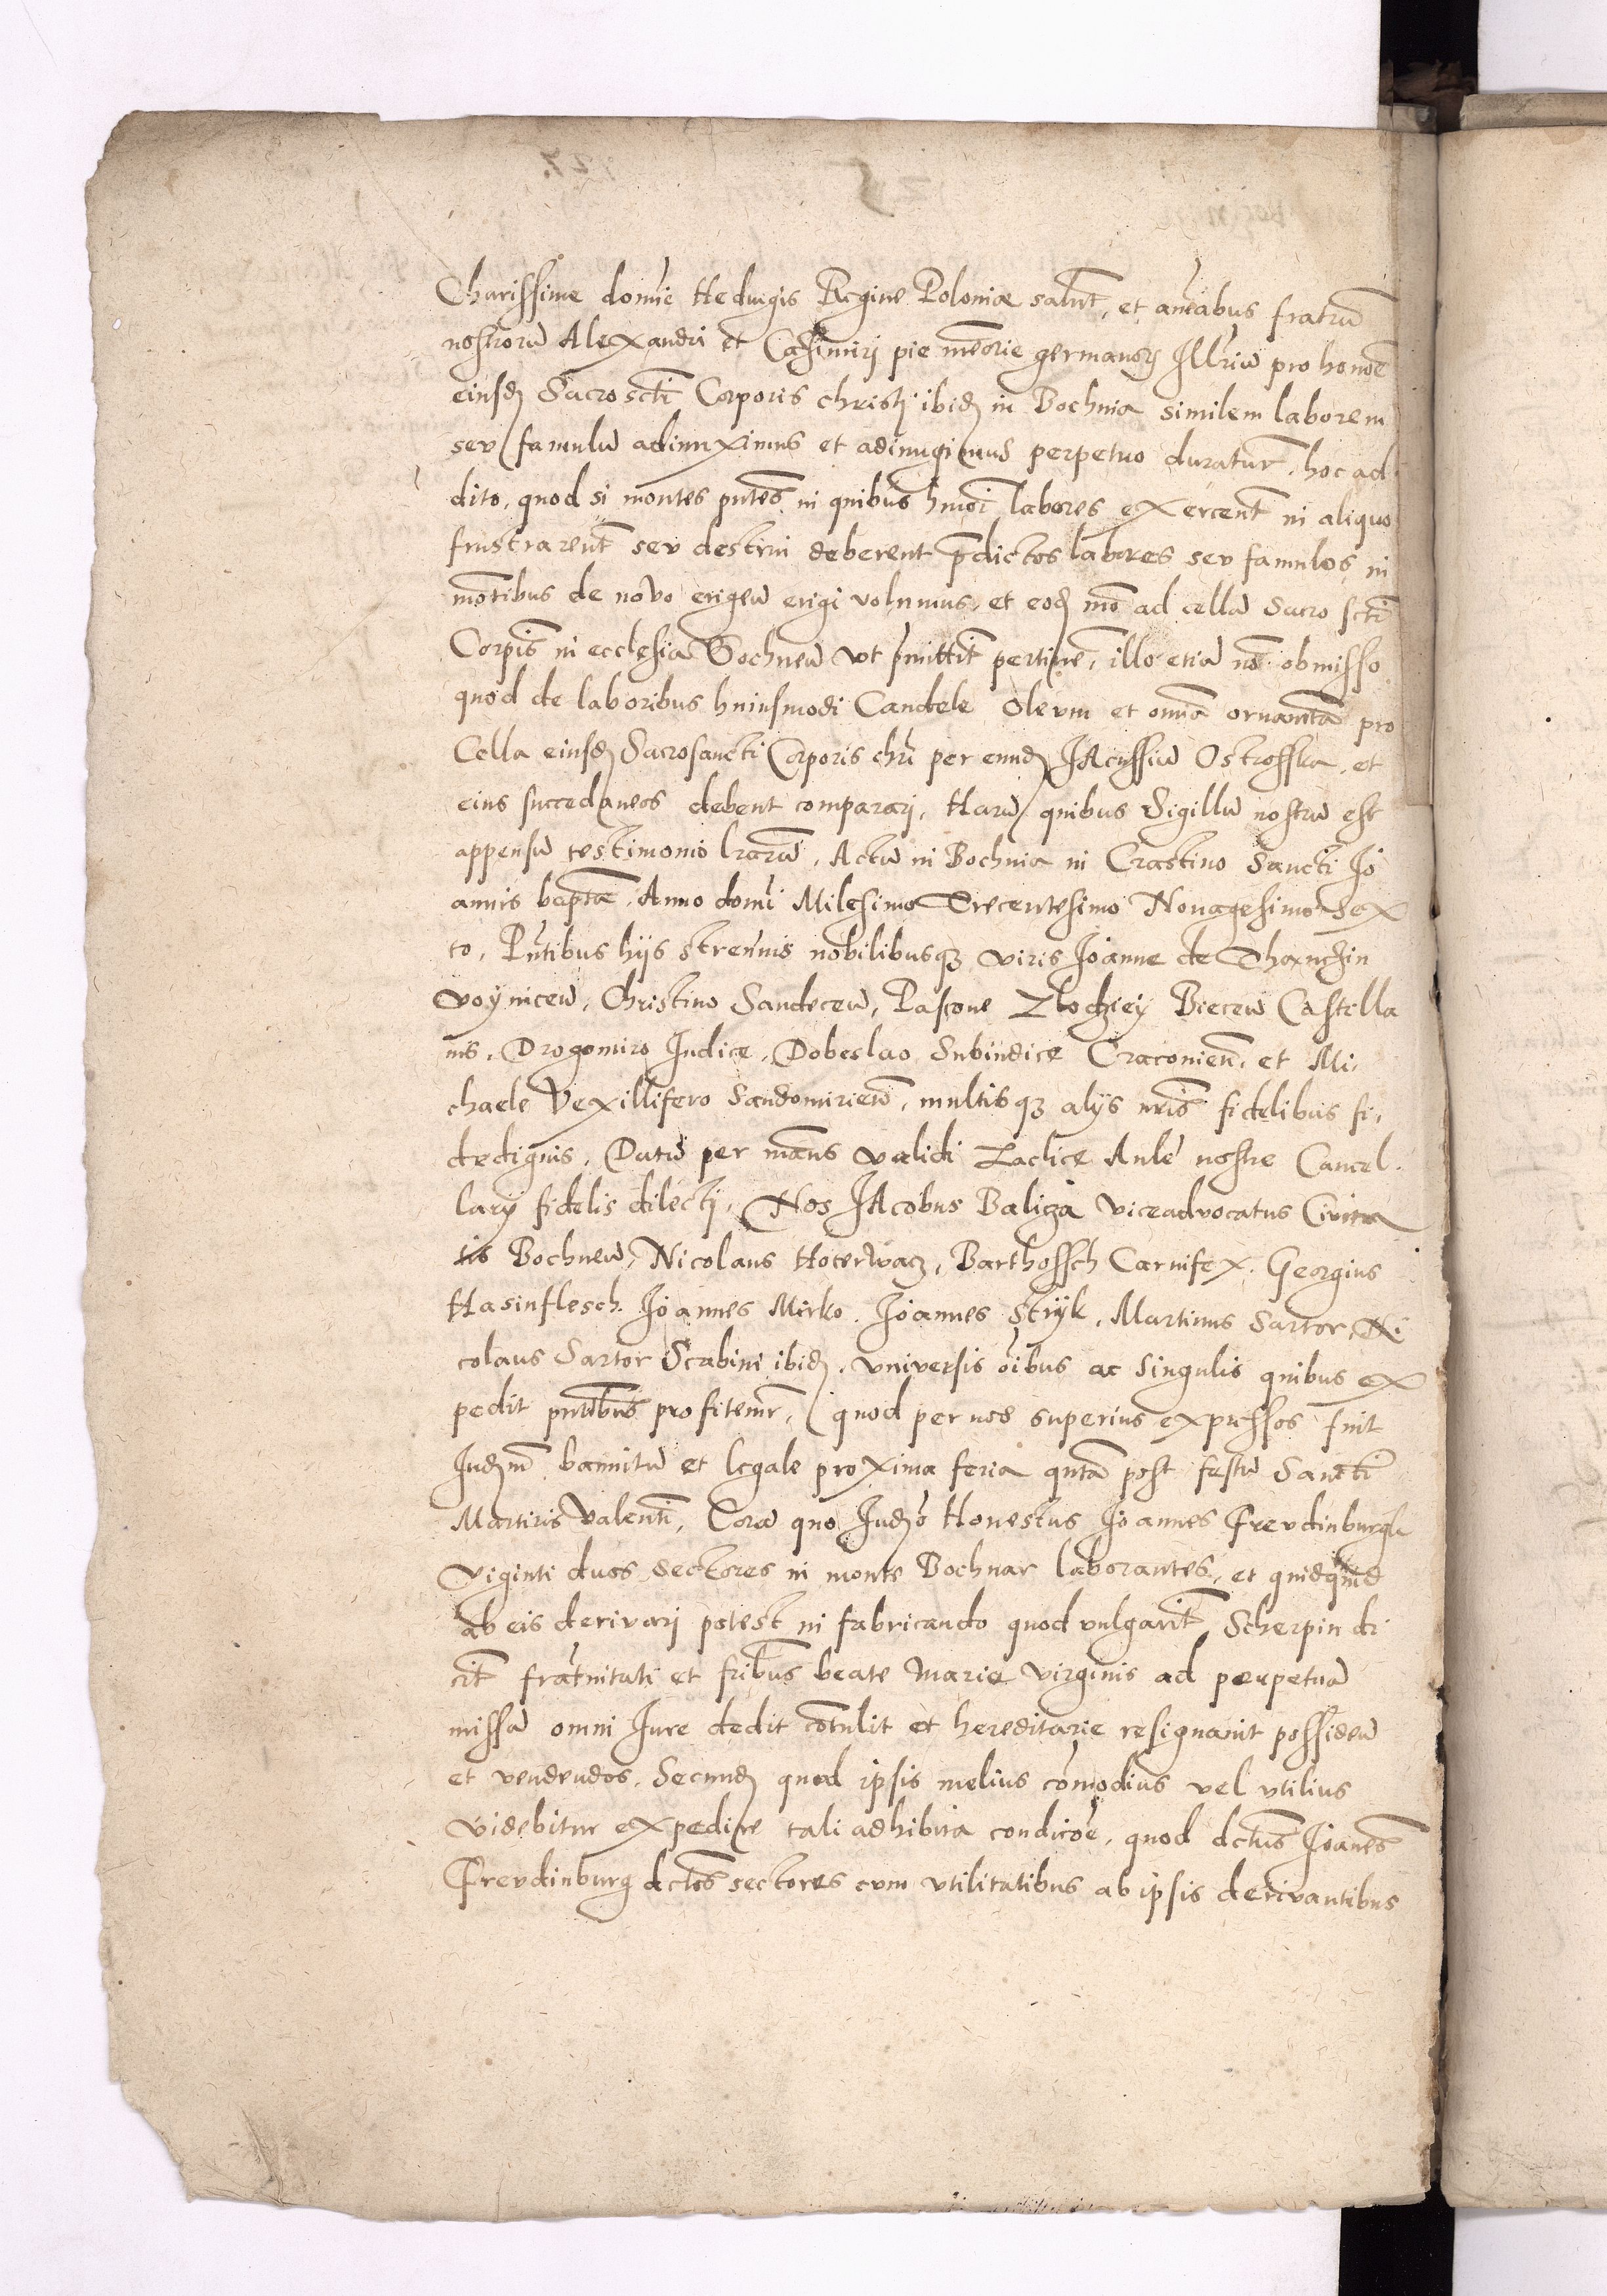 Charissime domīe Hedwigis Regine Poloniæ salūt, et aīabus fratrū
nostrorū Alexandri et Casimirj pie memorie germanorȝ Illriū pro honore
eiusdȝ Sacroscti Corporis christj ibidȝ in Bochnia similem laborem
seu famulū adiunximus et adiungimus perpetuo duratur̄, hoc ad
dito, quod si montes pntes in quibus hmoi labores exercent̄ in aliquo
frustrarent̄ seu destrui deberent p̄dictos labores seu famulos in
mōtibus de novo erigeñ erigi volumus, et eodȝ mō ad cellā Sacro scti
Corpis in ecclesia Bochneñ vt p̄mittit̄ pertinē, illo etiā nō obmisso
quod de laboribus huiusmodi Candele Oleum et omīa ornamēta pro
Cella eiusdȝ Sacrosancti Corporis chri per eundȝ JAcussiū Ostrosska, et
eius succedaneos debent comparārj, Harū quibus Sigillū nostrū est
appensū testimonio lrarū, Actū in Bochnia in Crastino Sancti Io
annis bapte, Anno domī Milesimo Trecentesimo Nonagesimo Sex
to, Pntibus hijs strenuis nobilibusqȝ viris Joanne de Thanczin
voyniceñ, Christino Sandeceñ, Pascone Zlodziey Bieceñ Castella
nis, Drogomiro Iudice, Dobeslao Subiudice Cracovieñ, et Mi,
chaele Vexillifero Sandomirieñ, multisqȝ alijs nris fidelibus fi,
dedignis, Datū per manus validi Zaclice Aule nostre Cancel,
larij fidelis dilectj, Nos JAcobus Baliga viceadvocatus Civita
tis Bochneñ, Nicolaus Hoterwacz, Barthossch Carnifex, Georgius
Hasinflesch, Joannes Mirko, Joannes Stryk, Martinus Sartor, Ni
colaus Sartor Scabini ibidȝ, vniversis oībus ac singulis quibus ex
pedit pntibus profitemr̄, quod per nos superius expressos fuit
Iudȝm bannitū et legale proxima feria qnta post festū Sancti
Martiris Valenti, Corā quo Iudȝo Honestus Joannes Freudinburgk
viginti duos sectores in monte Bochnar laborantes, et quidquid
ab eis derivarj potest in fabricando quod vulgarit̄ Scherpin di
cit̄ frat̄nitati et fribus beate Marie virginis ad perpetuā
missā omni Iure dedit cōtulit et hereditarie resignavit possideñ
et vendendos, Secundȝ quod ipsis melius cōmodius vel vtilius
videbitur expedire tali adhibita condicōe, quod dctus Joanes
Freudinburg dctos sectores cum vtilitatibus ab ipsis derivantibus